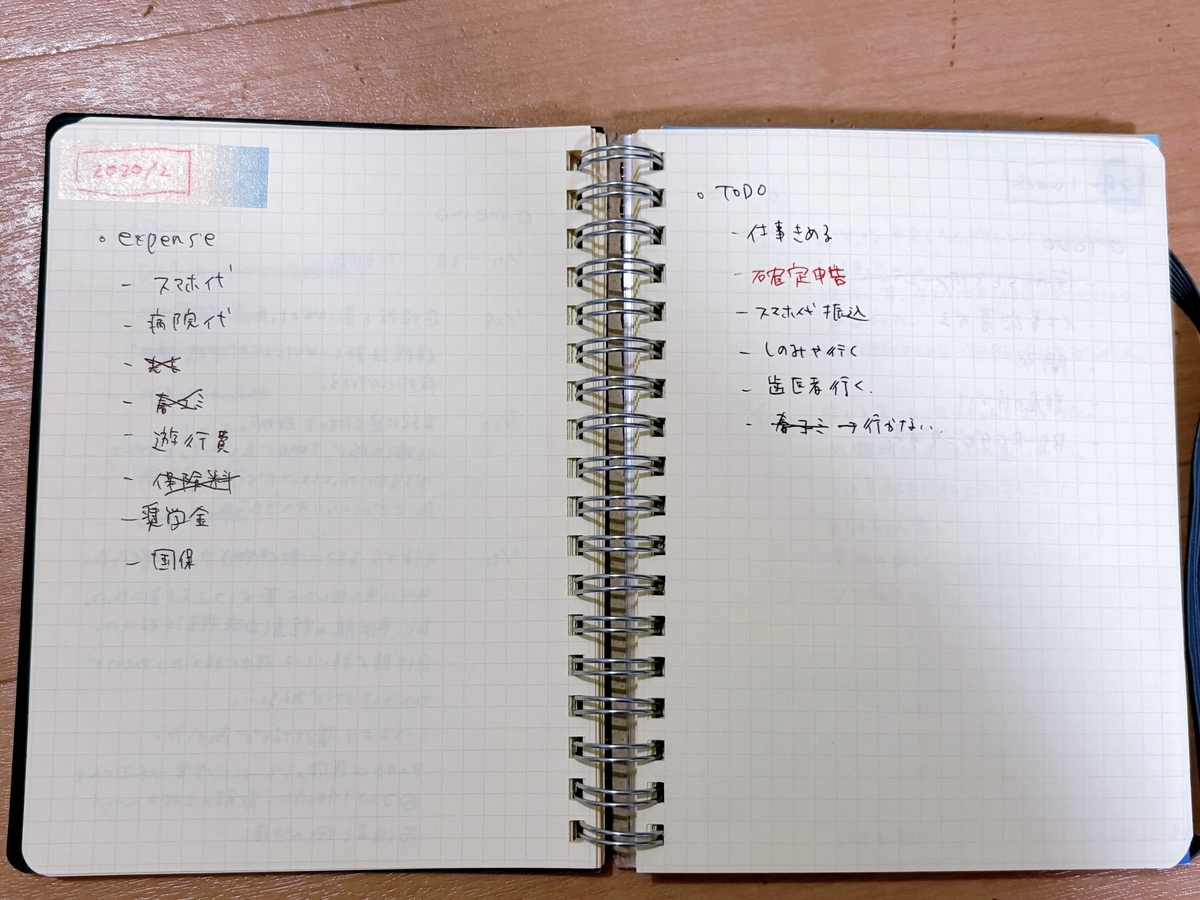 2020/2
○ expense
- スマホ代
- 病院代
-
- 春コミ
- 遊行費
- 保険料
- 奨学金
- 国保
○ TODO
- 仕事きめる
- 確定申告
- スマホ代振込
- しのみや行く
- 歯医者行く.
- 春コミ → 行かない..